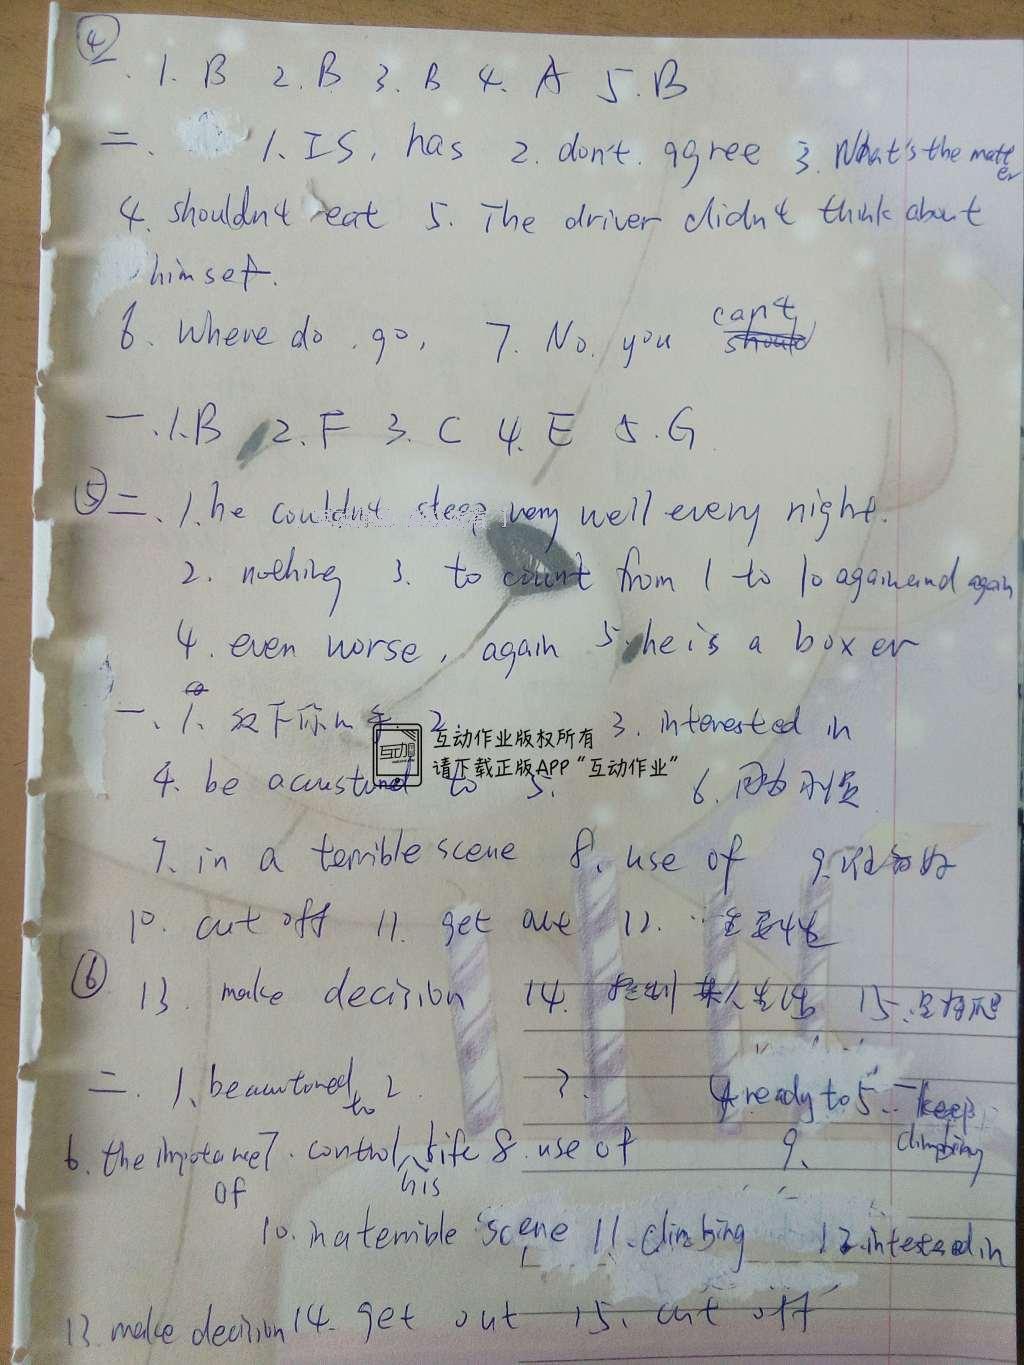 ④
一. 1. B 2. B 3. B 4. A 5. B
二. 1. IS, has 2. don't. agree 3. What's the matter
4. shouldn't eat 5. The driver didn't think about
himself.
6. Where do . go, 7. No. you can't
一. 1. B 2. F 3. C 4. E 5. G
⑤ 二. 1. he couldn't sleep very well every night.
2. nothing 3. to count from 1 to 10 again and again
4. even worse, again 5. he is a boxer
一. 1. 放下你的手 2. 3. interested in
互动作业版权所有
请下载正版APP“互动作业”
4. be acustoned to 5. 6.
7. in a terrible scene 8. use of 9.
10. cut off 11. get out 12.
⑥ 13. make decision 14. 控制某人生活 15.
二. 1. beacutoned to 2. 3. 4. ready to 5. keep climbing
6. the impotance of 7. control his life 8. use of 9.
10. in a terrible scene 11. climbing 12. intested in
13. make decision 14. get out 15. cut off